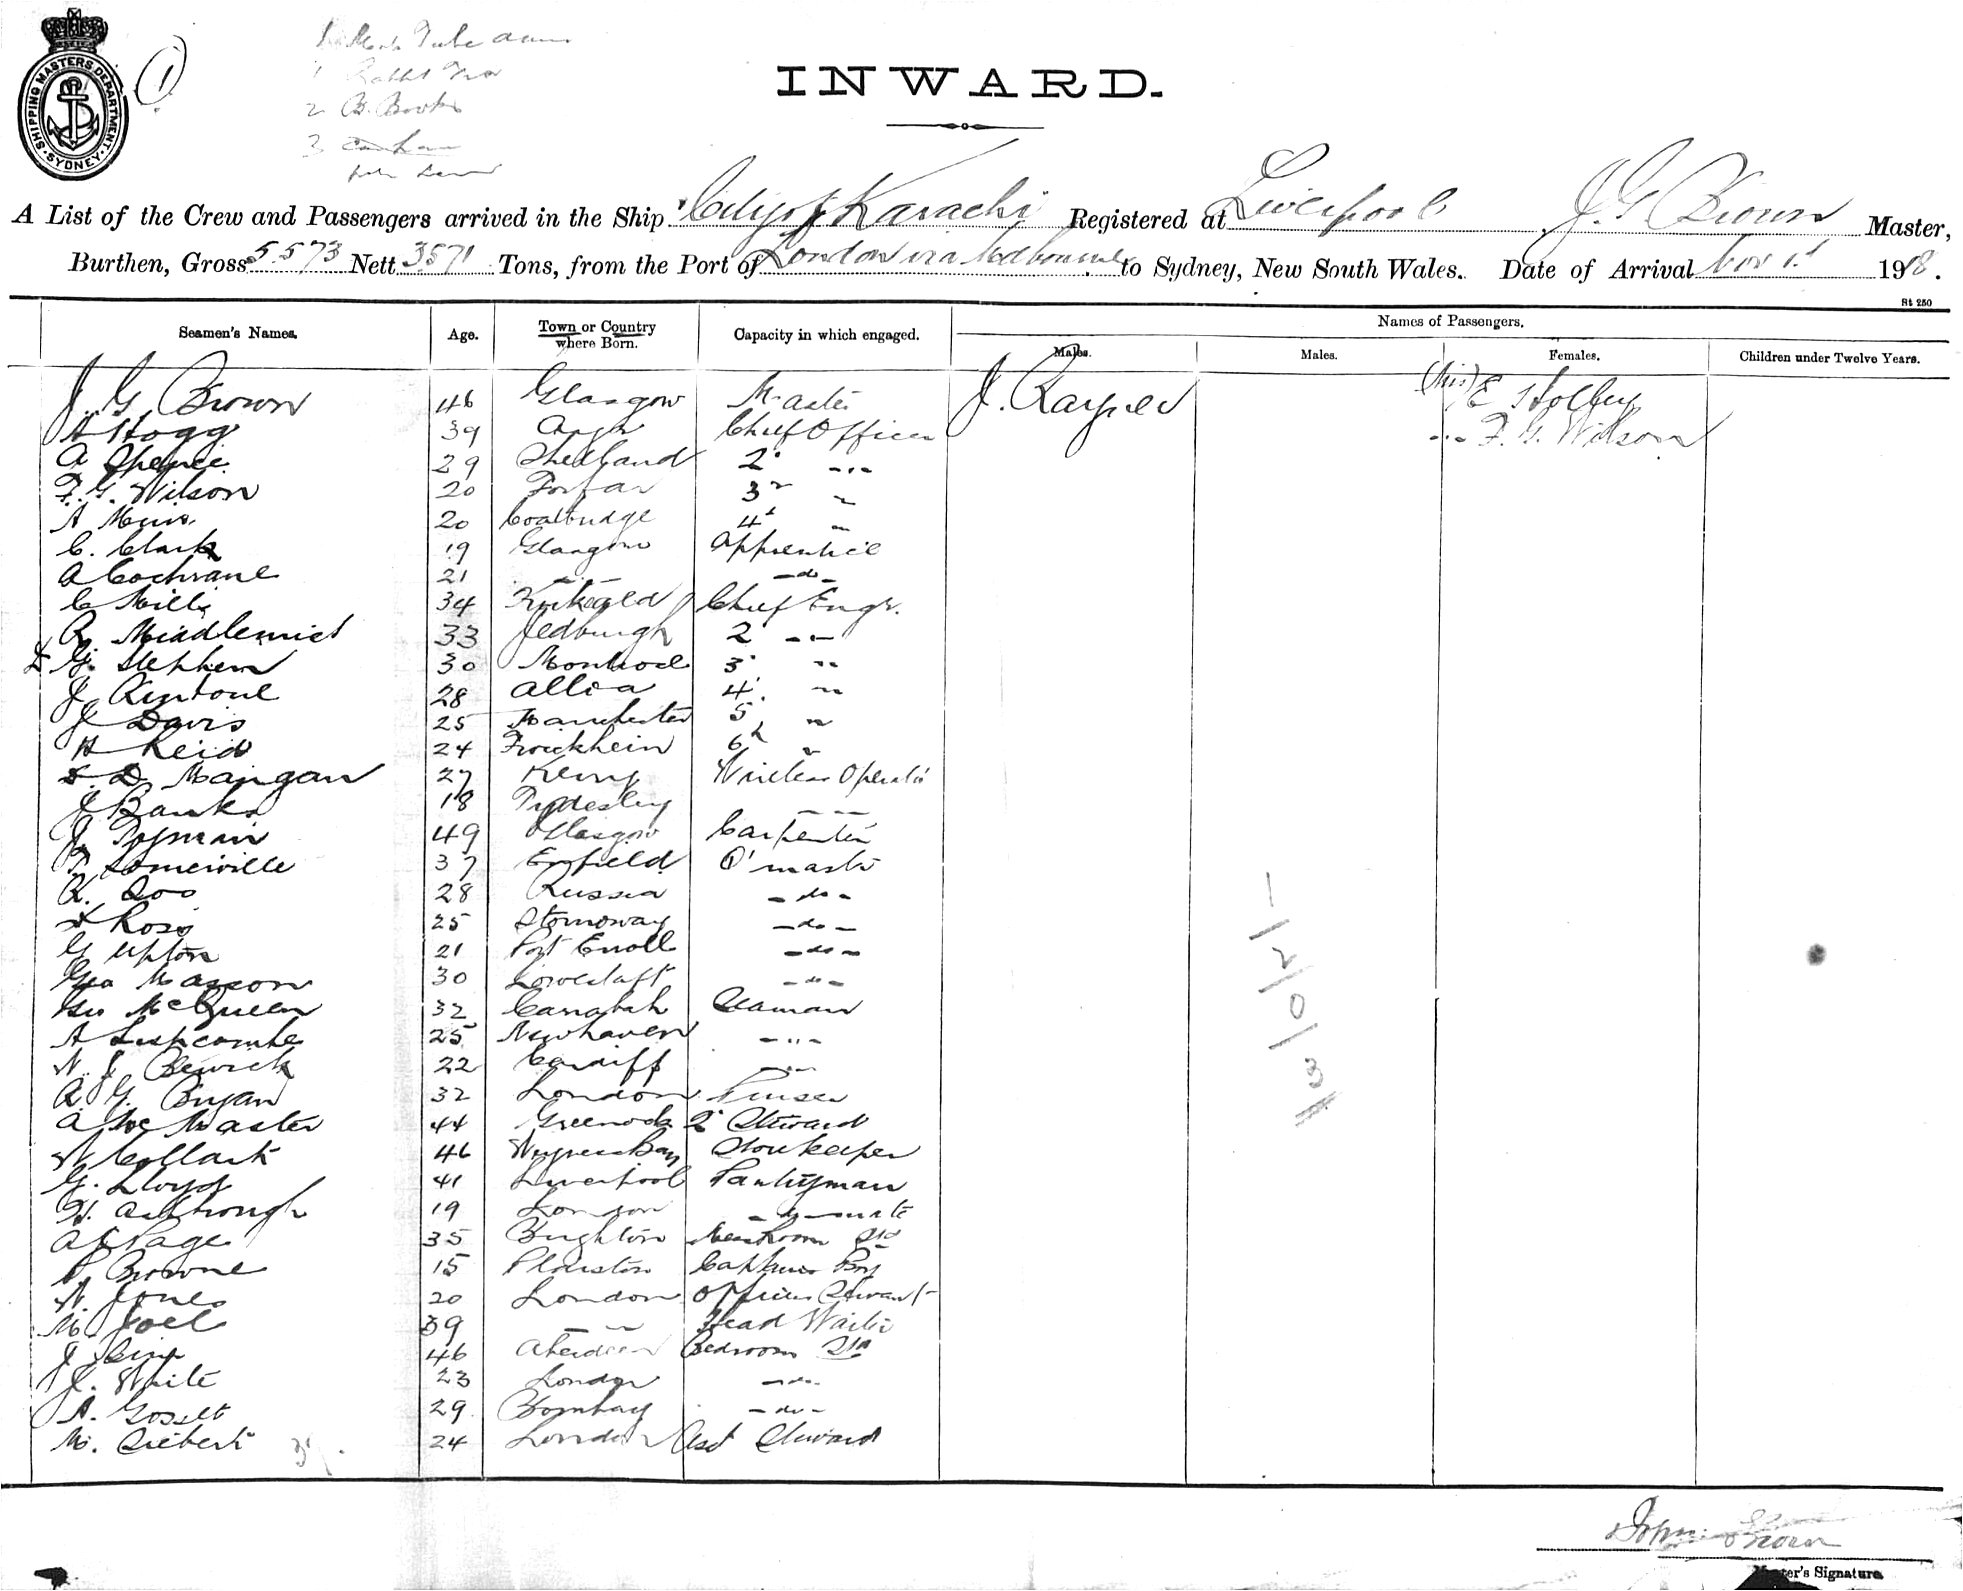 SHIPPING MASTERS DEPARTMENT · SYDNEY ·
1
2 B. Books
3
INWARD.
A List of the Crew and Passengers arrived in the Ship City of Karachi Registered at Liverpool J. G. Brown Master,
Burthen, Gross 5.573 Nett 3571 Tons, from the Port of London via Melbourne to Sydney, New South Wales. Date of Arrival Nov 1st 1918.
St 250
Seamen's Names. Age. Town or Country where Born. Capacity in which engaged. Names of Passengers.
Males. Males. Females. Children under Twelve Years.
J. G. Brown 46 Glasgow Master J. Rayner E
A Hogg 39 Chief Officer F. G. Wilson
A Spence 29 Shetland 2
F. G. Wilson 20 Forfar 3
A Muir 20 Coatbridge 4
C. Clark 19 Glasgow Apprentice
A Cochrane 21 - do -
C Mills 34 Chief Engr.
R. Middlemist 33 Jedburgh 2
G. Stephen 30 Montrose 3
J Rintoul 28 Alloa 4
J Davis 25 Manchester 5
H Reid 24 Friockheim 6
D. Mangan 27 Kerry Wireless Operator
J Banks 18 Tyldesley
J. 49 Glasgow Carpenter
Somerville 37 Enfield Q'master
K. Soo 28 Russia - do -
Ross 25 Stornoway - do -
G Upton 21 Port Erroll - do -
Geo Masson 30 Lowestoft - do -
Geo McQueen 32 Seaman
A Lipscombe 25 Newhaven
W. J. Bewick 22 Cardiff
R G. Bryan 32 London Purser
A McMaster 44 Greenock 2 Steward
W Collark 46 Storekeeper
G. Lloyd 41 Liverpool Pantryman
19 London mate
A Page 35 Brighton Messroom Std
Browne 15 Plaistow Captains Boy
W. Jones 20 London Officers Steward
M. Joel 39 Head Waiter
J 46 Aberdeen Bedroom Std
J. White 23 London - do -
A. Gosset 29 Bombay - do -
M. Siebert 24 London Asst Steward
37
3/0/2/-
John Brown
Master's Signature.